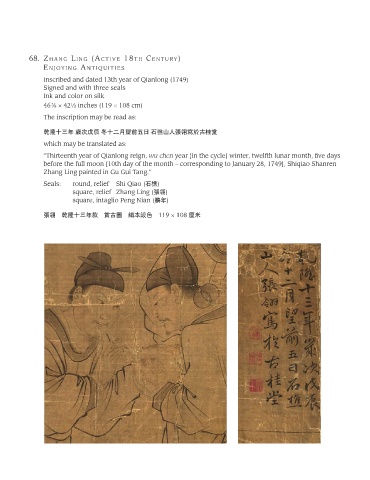 68. ZHANG LING (ACTIVE 18TH CENTURY)
ENJOYING ANTIQUITIES
inscribed and dated 13th year of Qianlong (1749)
Signed and with three seals
Ink and color on silk
46⅞ × 42½ inches (119 × 108 cm)
The inscription may be read as:
乾隆十三年 歲次戊辰 冬十二月望前五日 石樵山人張翎寫於古桂堂
which may be translated as:
"Thirteenth year of Qianlong reign, wu chen year [in the cycle] winter, twelfth lunar month, five days
before the full moon [10th day of the month – corresponding to January 28, 1749], Shiqiao Shanren
Zhang Ling painted in Gu Gui Tang."
Seals: round, relief Shi Qiao (石樵)
square, relief Zhang Ling (張翎)
square, intaglio Peng Nian (鵬年)
張翎 乾隆十三年款 賞古圖 絹本設色 119 × 108 厘米
乾隆十三年歲次戊辰
冬十二月望前五日石樵
山人張翎寫於古桂堂